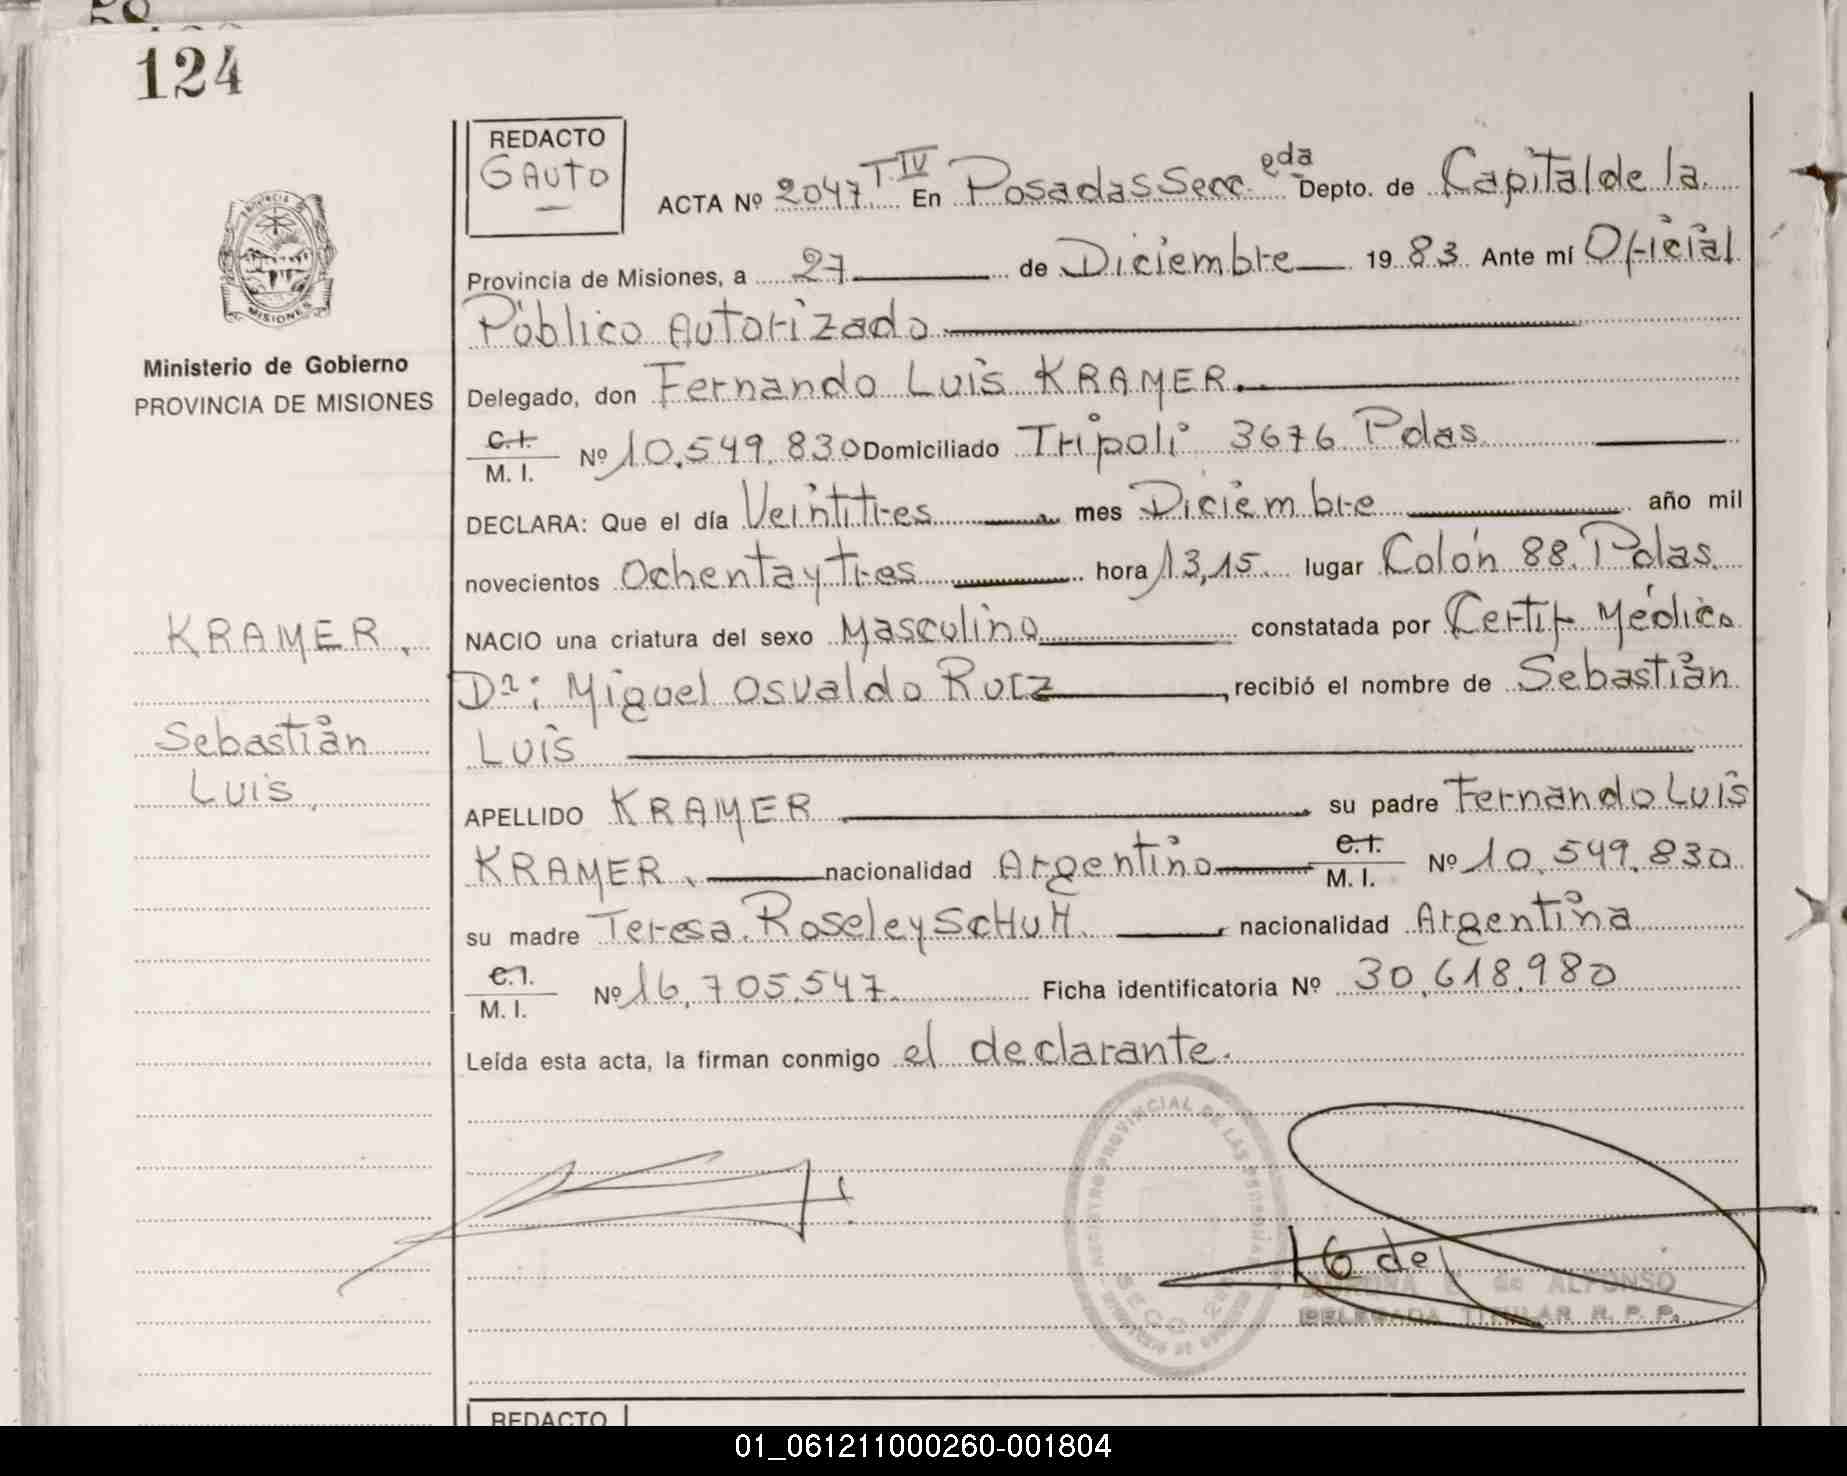 124
REDACTO
GAUTO
ACTA Nº 2047 T.IV En Posadas Secc. eda Depto. de Capital de la
Provincia de Misiones, a 27 de Diciembre 1983 Ante mí Oficial
Público Autorizado
Delegado, don Fernando Luis KRAMER.
C.I.
M. I. Nº 10.549.830 Domiciliado Tripoli 3676 Pdas
DECLARA: Que el día Veintitres mes Diciembre año mil
novecientos Ochenta y tres hora 13,15 lugar Colón 88. Pdas.
NACIO una criatura del sexo Masculino constatada por Certif Médico
Dr: Miguel Osvaldo Ruiz, recibió el nombre de Sebastián
Luis
APELLIDO KRAMER su padre Fernando Luis
KRAMER. nacionalidad Argentino C.I.
M. I. Nº 10.549.830
su madre Teresa Roseley SCHUH nacionalidad Argentina
C.I.
M. I. Nº 16.705.547 Ficha identificatoria Nº 30.618.980
Leída esta acta, la firman conmigo el declarante.
PROVINCIA DE
MISIONES
Ministerio de Gobierno
PROVINCIA DE MISIONES
KRAMER.
Sebastián
Luis.
REGISTRO PROVINCIAL DE LAS PERSONAS
SECC. 2da
de ALFONSO
DELEGADA TITULAR R. P. P.
REDACTO
01_061211000260-001804